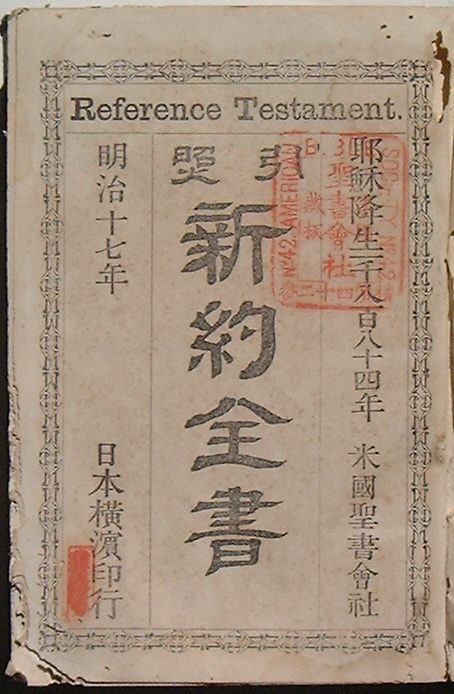 Reference Testament.
耶穌降生一千八百八十四年 米國聖書會社
引照
新約全書
明治十七年
日本橫濱印行
No 42 AMERICAN
聖書會社
藏板